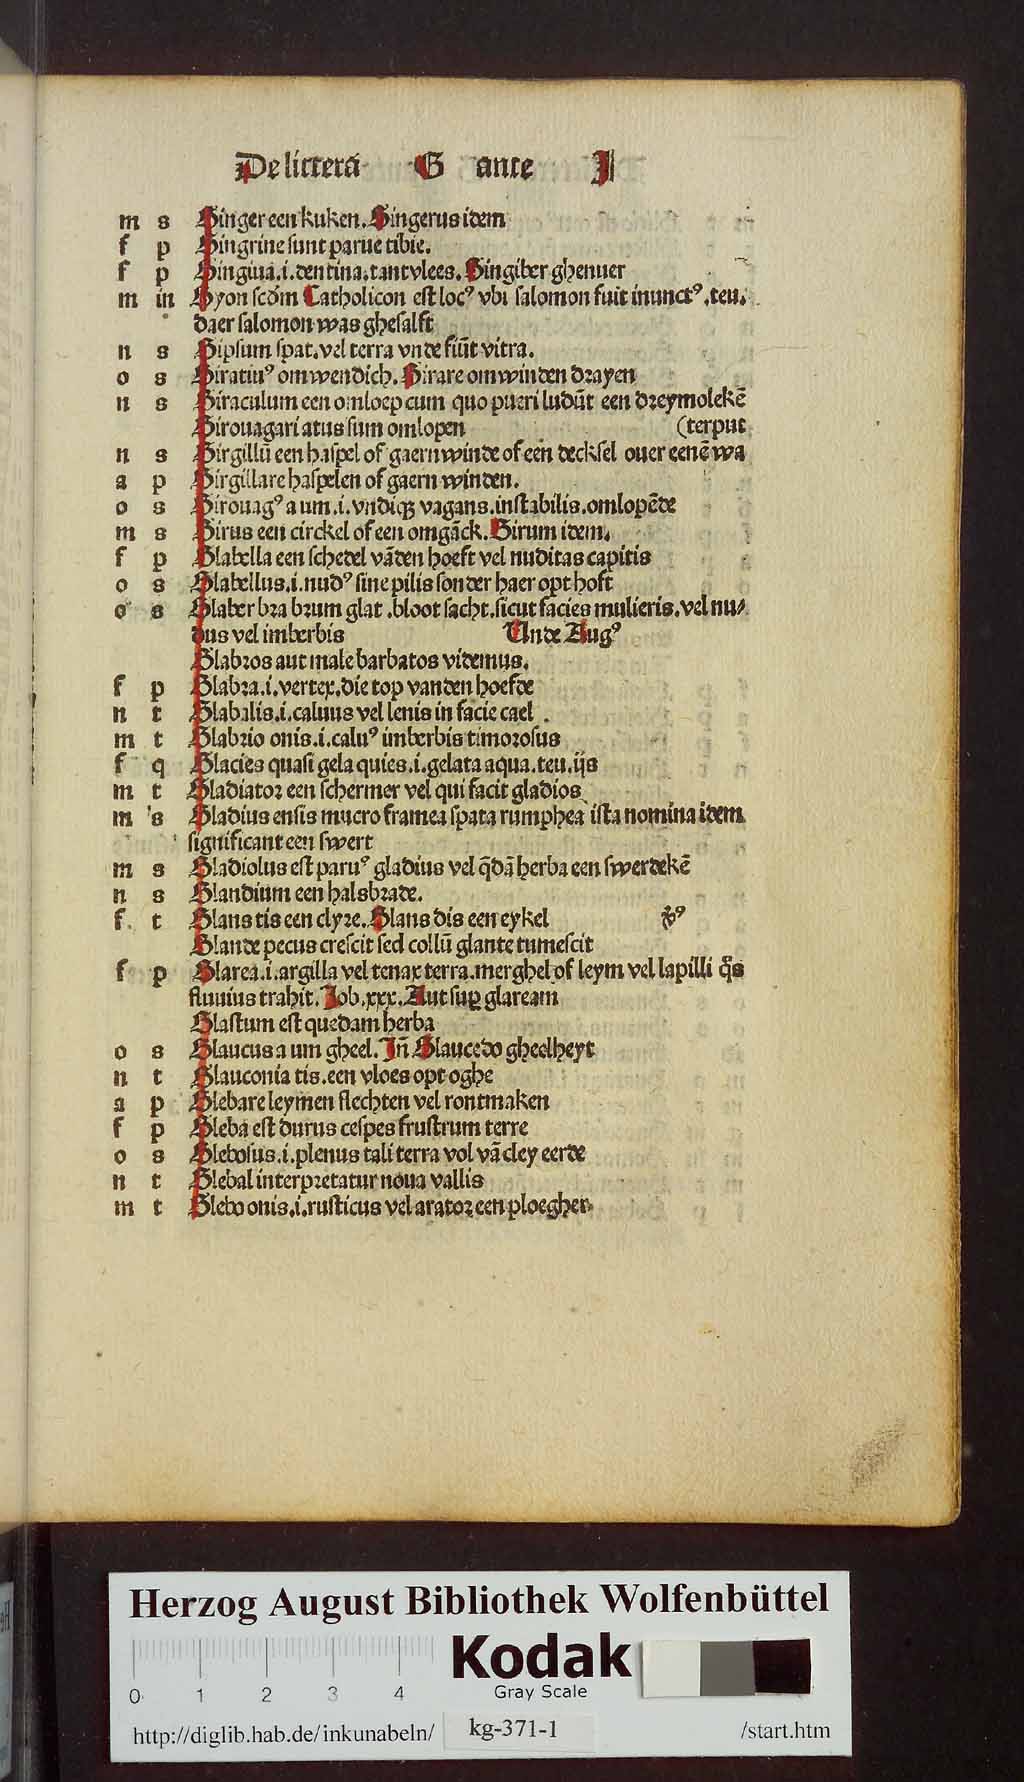 De littera G ante I
m s Ginger een kuken. Gingerus idem
f p Gingrine sunt parue tibie.
f p Gingiua .i. dentina. tantvlees. Gingiber ghenuer
m in Gyon scdm̄ Catholicon est locꝰ vbi salomon fuit inunctꝰ. teu.
daer salomon was ghesalft
n s Gipsum spat. vel terra vnde fiūt vitra.
o s Giratiuꝰ omwendich. Girare omwinden drayen
n s Giraculum een omloep cum quo pueri ludūt een dreymolekē
Girouagari atus sum omlopen (terput
n s Girgillū een haspel of gaernwinde of een decksel ouer eenē wa
a p Girgillare haspelen of gaern winden.
o s Girouagꝰ a um .i. vndiqꝫ vagans. instabilis. omlopēde
m s Girus een circkel of een omgāck. Girum idem.
f p Glabella een schedel vāden hoeft vel nuditas capitis
o s Glabellus .i. nudꝰ sine pilis sonder haer opt hoft
o s Glaber bra brum glat. bloot sacht. sicut facies mulieris. vel nu/
dus vel imberbis Unde Augꝰ
Glabros aut male barbatos videmus.
f p Glabra .i. vertex. die top vanden hoefde
n t Glabalis .i. caluus vel lenis in facie cael.
m t Glabrio onis .i. caluꝰ imberbis timorosus
f q Glacies quasi gela quies .i. gelata aqua. teu. ijs
m t Gladiator een schermer vel qui facit gladios
m s Gladius ensis mucro framea spata rumphea ista nomina idem
significant een swert
m s Gladiolus est paruꝰ gladius vel q̄dā herba een swerdekē
n s Glandium een halsbrade.
f t Glans tis een clyre. Glans dis een eykel
Glande pecus crescit sed collū glante tumescit
f p Glarea .i. argilla vel tenax terra. merghel of leym vel lapilli q̄s
fluuius trahit. Iob .xxx. Aut suꝑ glaream
Glastum est quedam herba
o s Glaucus a um gheel. Iñ Glaucedo gheelheyt
n t Glauconia tis. een vloes opt oghe
a p Glebare leymen flechten vel rontmaken
f p Gleba est durus cespes frustrum terre
o s Glebosus .i. plenus tali terra vol vā cley eerde
n t Glebal interpretatur noua vallis
m t Glebo onis .i. rusticus vel arator een ploegher
Herzog August Bibliothek Wolfenbüttel
0 1 2 3 4
Kodak
Gray Scale
http://diglib.hab.de/inkunabeln/ kg-371-1 /start.htm